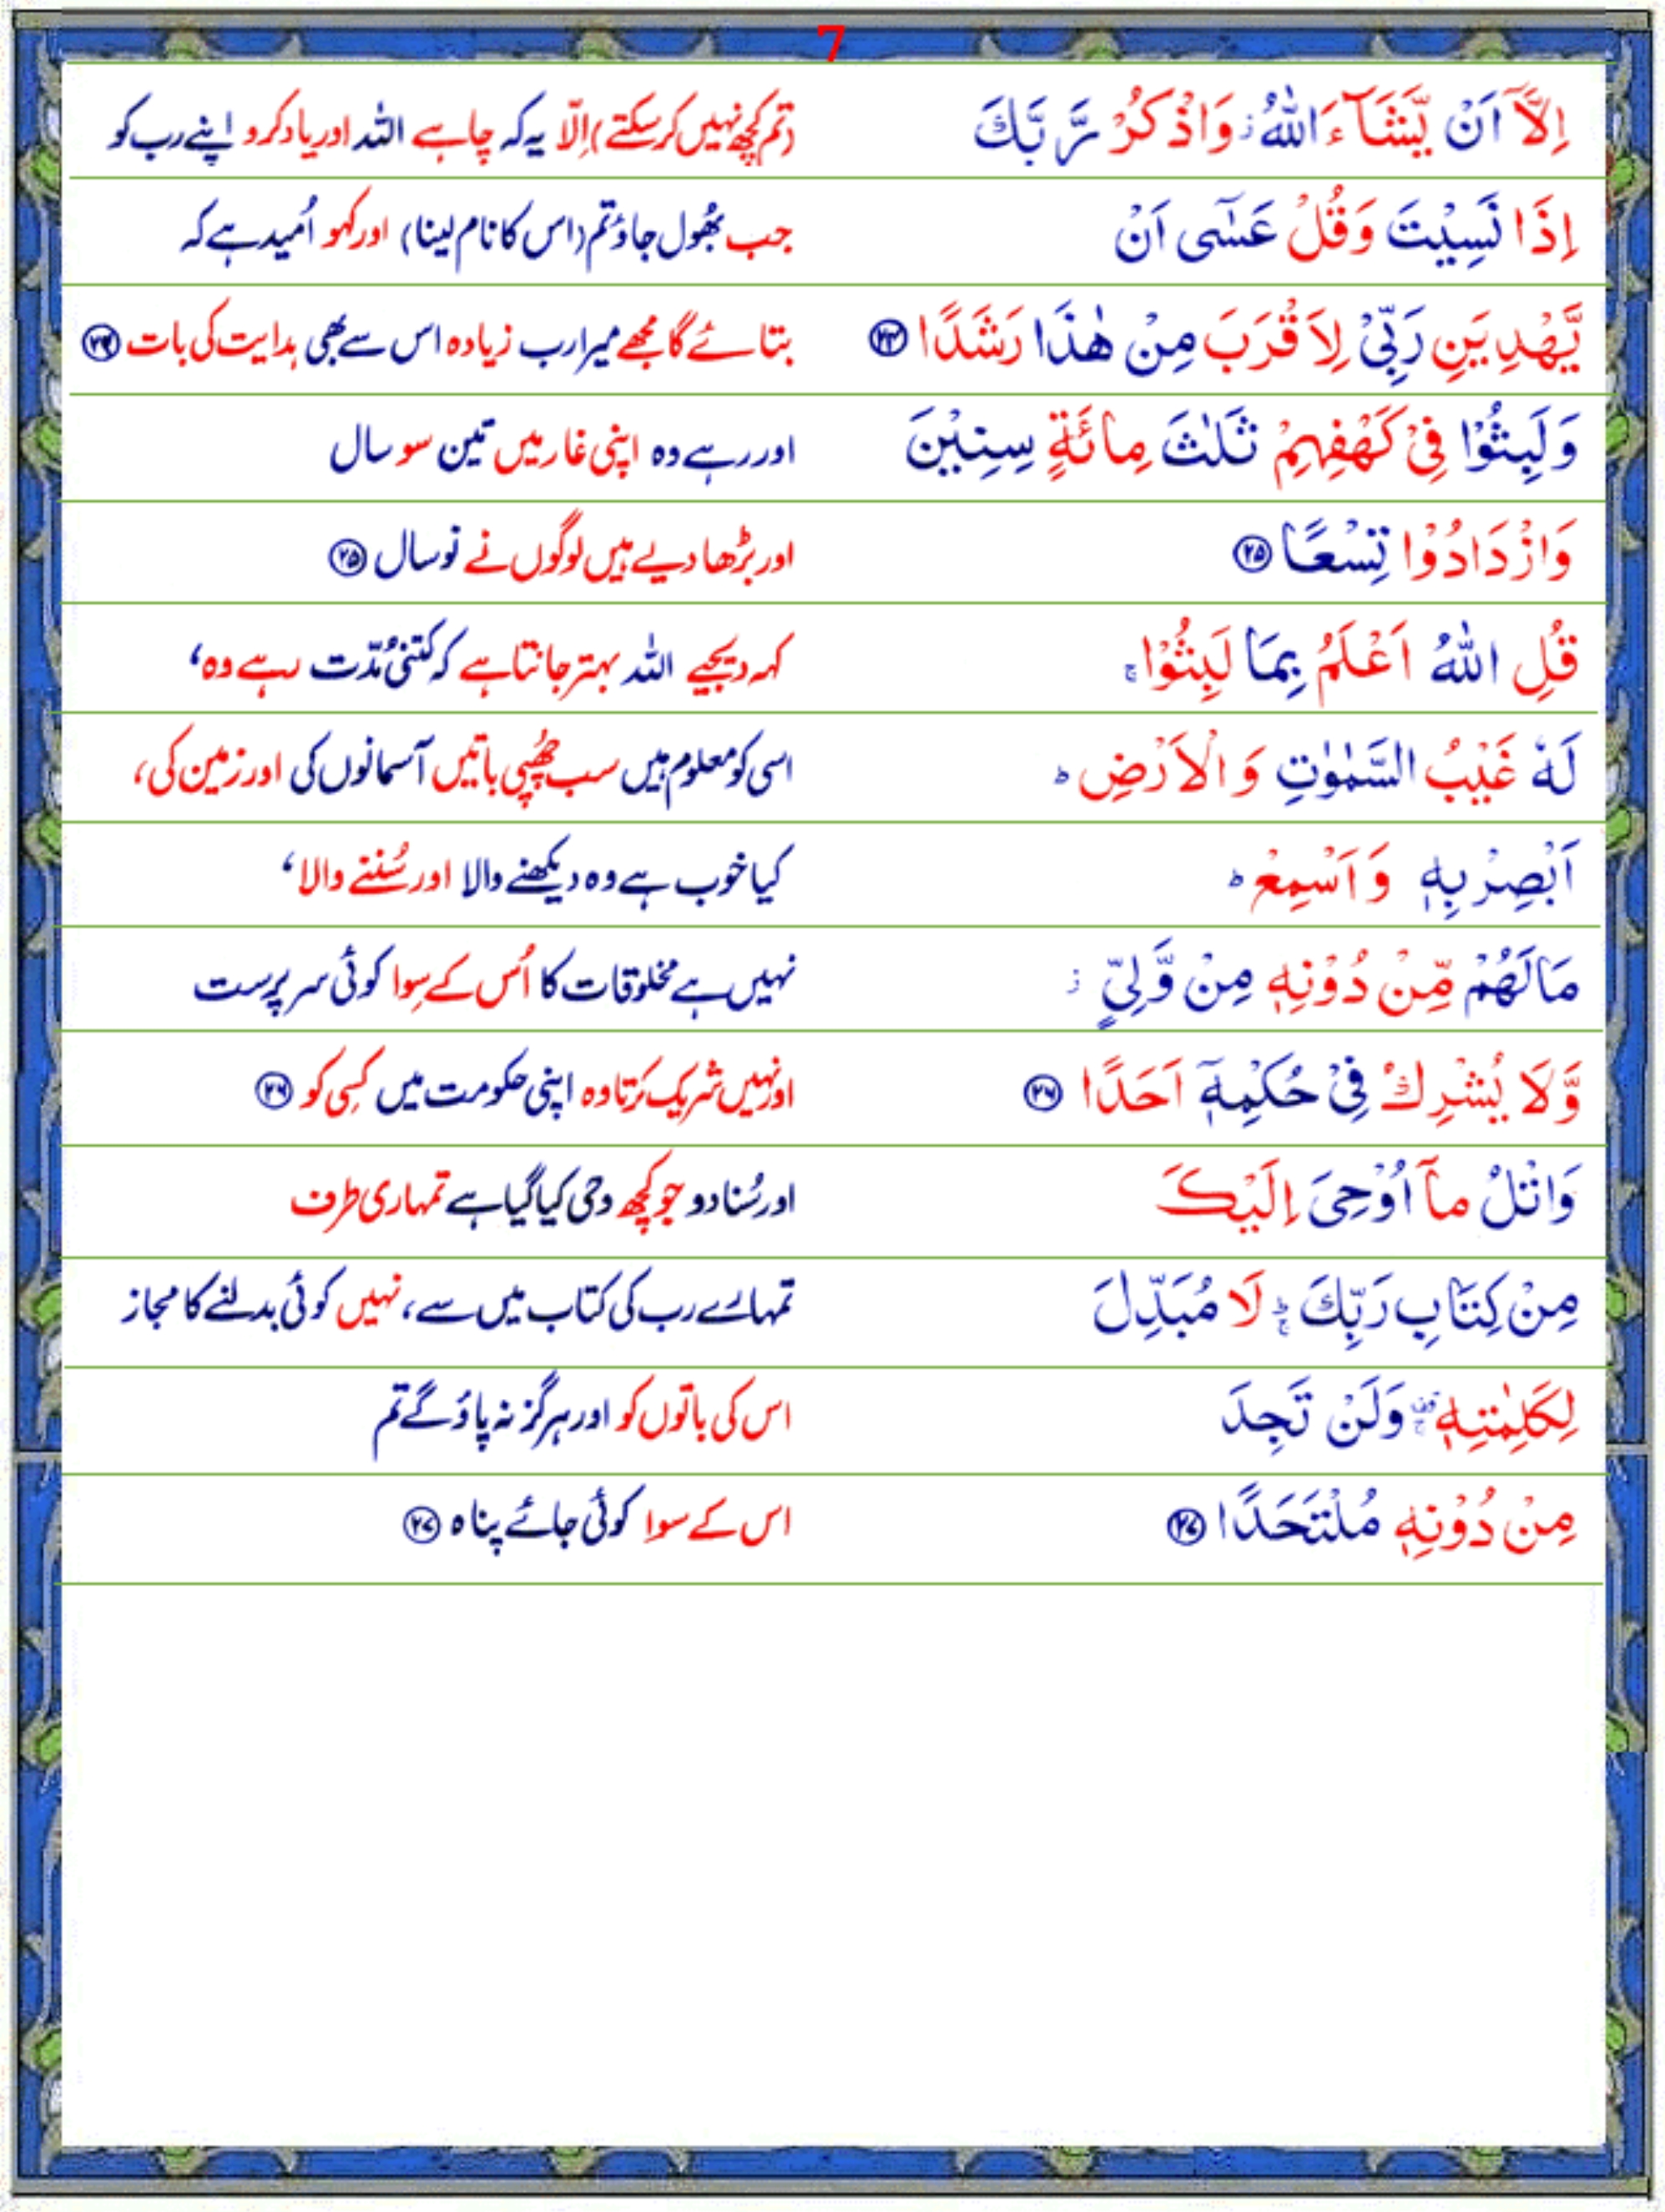 7
اِلَّاۤ اَنْ یَّشَآءَ اللّٰهُ ؗ وَاذْكُرْ رَّبَّكَ (تم کچھ نہیں کرسکتے) اِلّا یہ کہ چاہے اللہ اور یاد کرو اپنے رب کو
اِذَا نَسِیْتَ وَقُلْ عَسٰۤی اَنْ جب بھُول جاؤ تم (اس کا نام لینا) اور کہو اُمید ہے کہ
یَّهْدِیَنِ رَبِّیْ لِاَقْرَبَ مِنْ هٰذَا رَشَدًا ۲۴ بتائے گا مجھے میرا رب زیادہ اس سے بھی ہدایت کی بات ۲۴
وَلَبِثُوْا فِیْ كَهْفِهِمْ ثَلٰثَ مِائَةٍ سِنِیْنَ اور رہے وہ اپنی غار میں تین سو سال
وَازْدَادُوْا تِسْعًا ۲۵ اور بڑھا دیے ہیں لوگوں نے نو سال ۲۵
قُلِ اللّٰهُ اَعْلَمُ بِمَا لَبِثُوْا ۚ کہہ دیجیے اللہ بہتر جانتا ہے کہ کتنی مُدّت رہے وہ‘
لَهٗ غَیْبُ السَّمٰوٰتِ وَ الْاَرْضِ ؕ اسی کو معلوم ہیں سب چھُپی باتیں آسمانوں کی اور زمین کی،
اَبْصِرْ بِهٖ وَ اَسْمِعْ ؕ کیا خوب ہے وہ دیکھنے والا اور سُننے والا‘
مَا لَهُمْ مِّنْ دُوْنِهٖ مِنْ وَّلِیٍّ ؗ نہیں ہے مخلوقات کا اُس کے سِوا کوئی سرپرست
وَّلَا یُشْرِكُ فِیْ حُكْمِهٖۤ اَحَدًا ۲۶ اور نہیں شریک کرتا وہ اپنی حکومت میں کسِی کو ۲۶
وَاتْلُ مَاۤ اُوْحِیَ اِلَیْكَ اور سُنا دو جو کچھ وحی کیا گیا ہے تمہاری طرف
مِنْ كِتَابِ رَبِّكَ ؕۚ لَا مُبَدِّلَ تمہارے رب کی کتاب میں سے، نہیں کوئی بدلنے کا مجاز
لِكَلِمٰتِهٖ ۫ۚ وَلَنْ تَجِدَ اس کی باتوں کو اور ہرگز نہ پاؤ گے تم
مِنْ دُوْنِهٖ مُلْتَحَدًا ۲۷ اس کے سوا کوئی جائے پناہ ۲۷